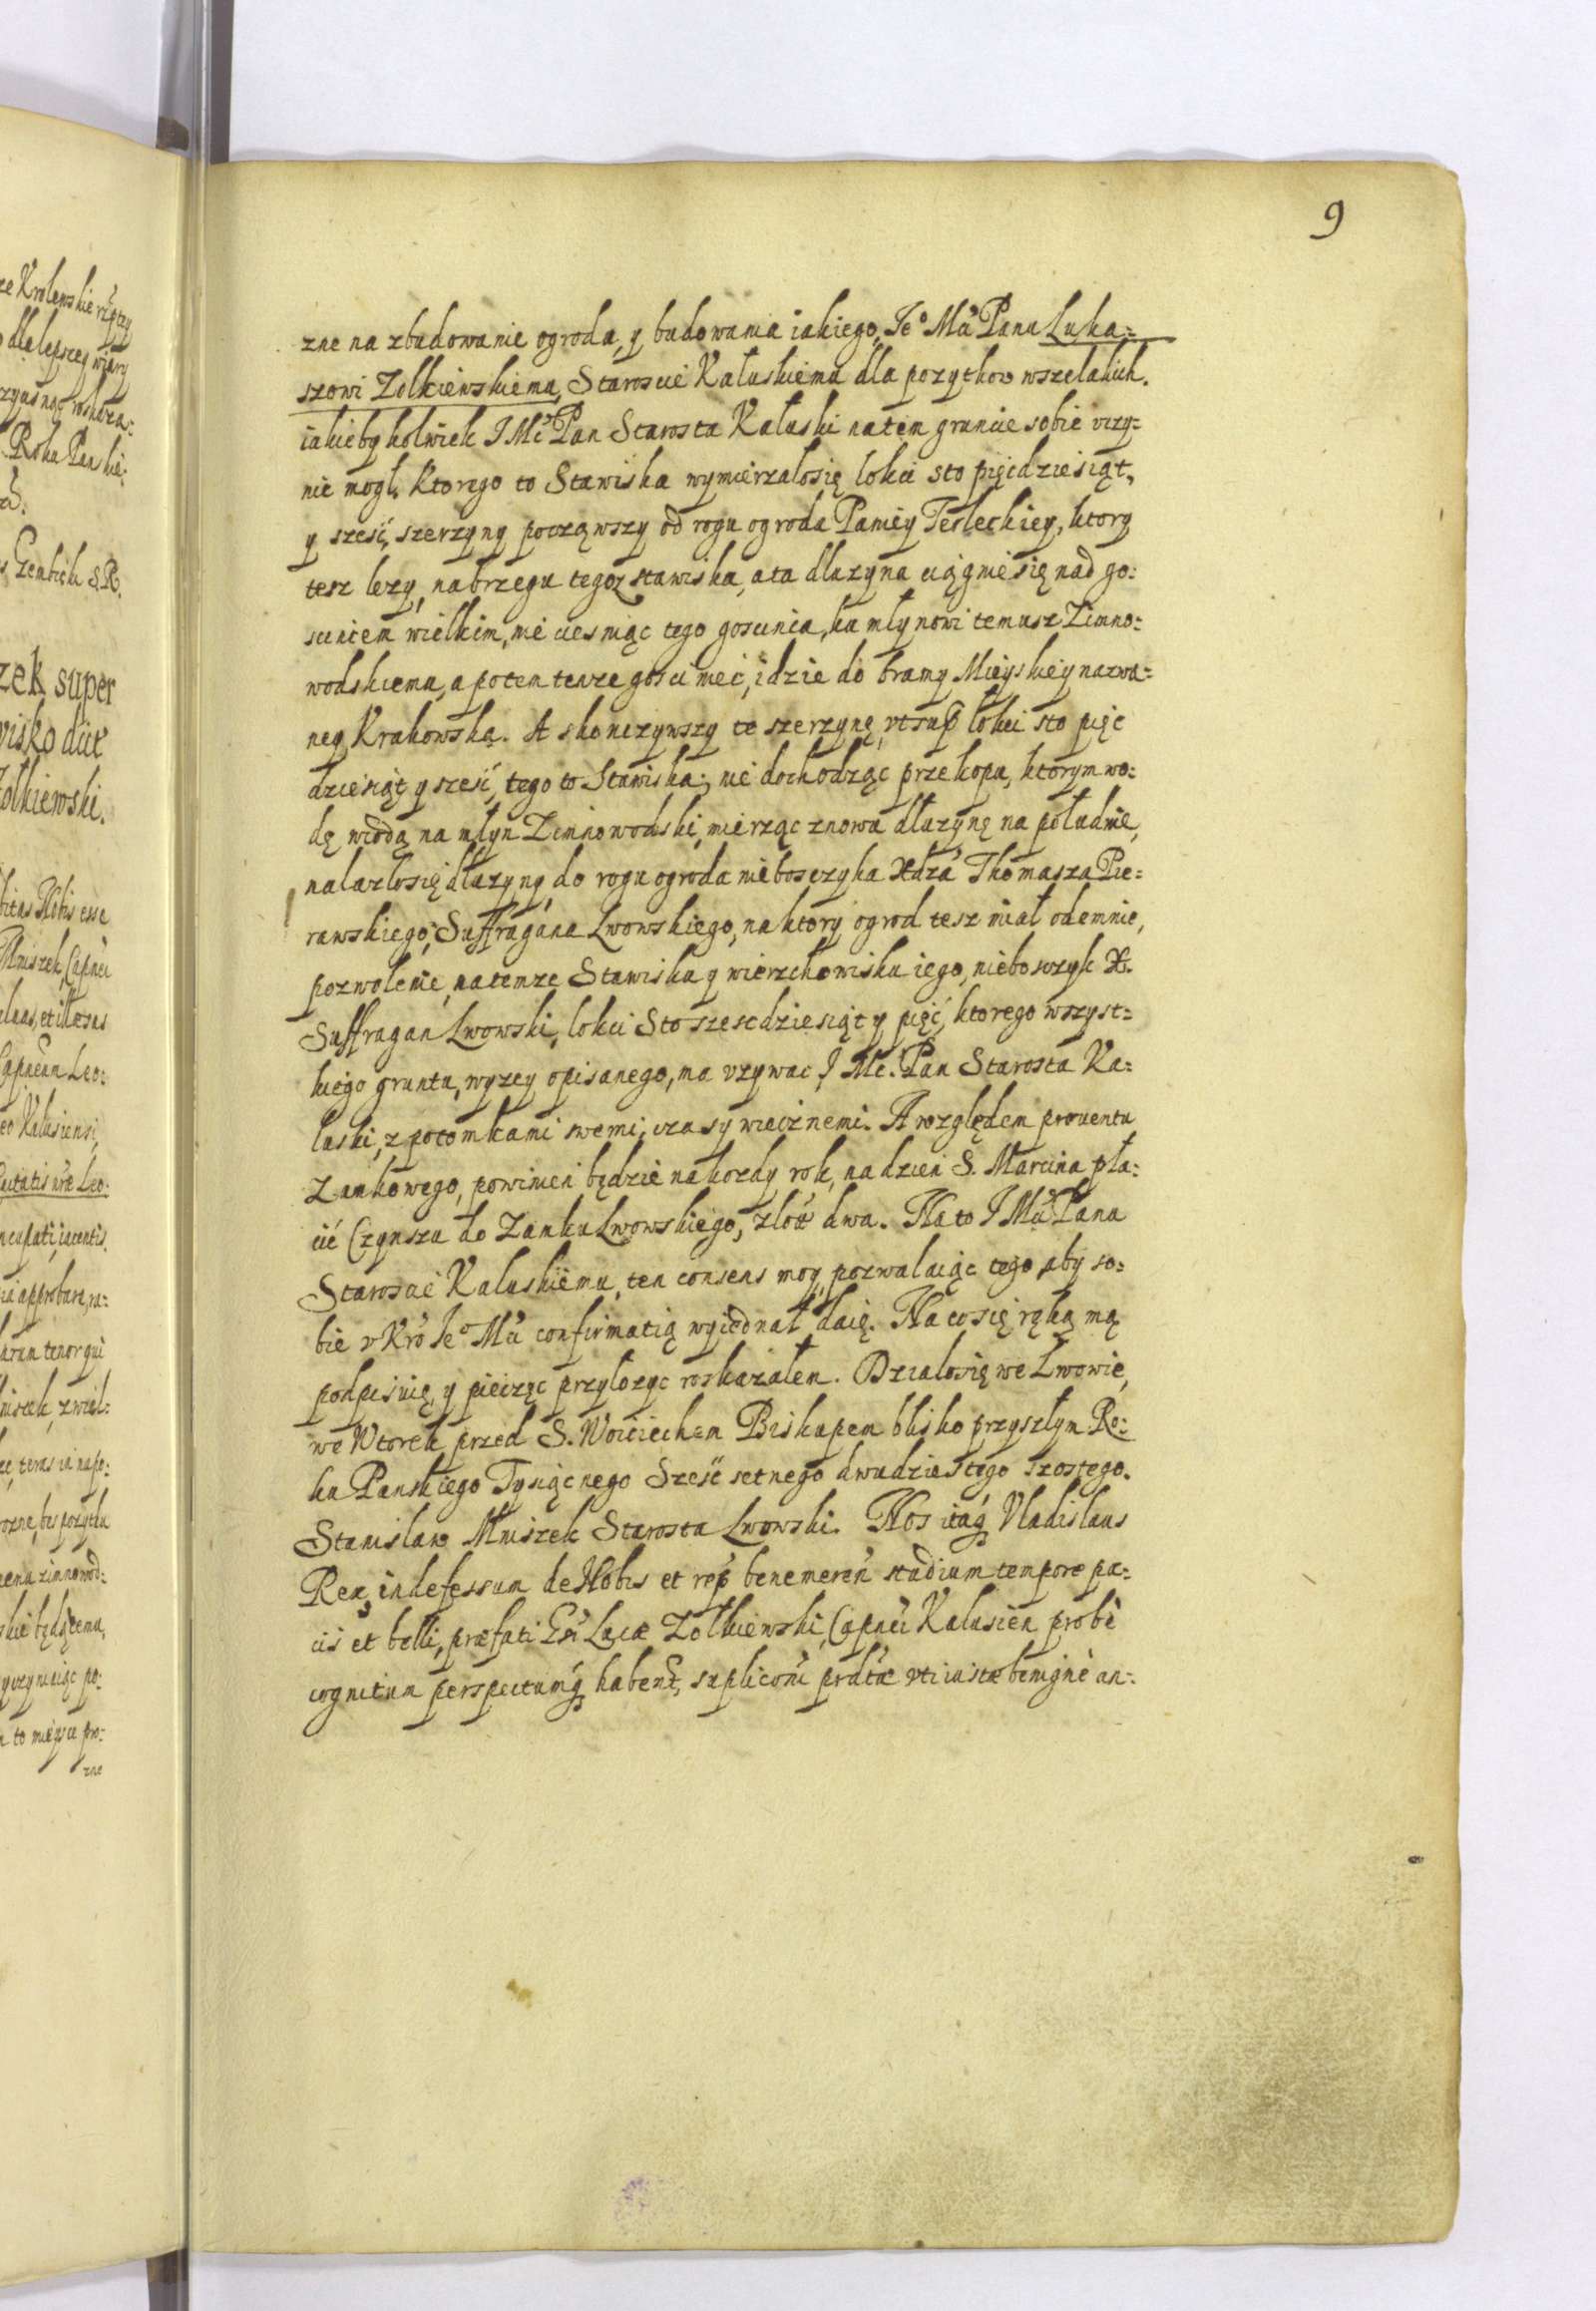 9
zne na zbudowanie ogroda, y budowania iakiego, Ie° Mći Panu Luka=
szowi Zolkiewskiemu, Staroscie Kałuskiemu dla pozytkow wszelakich.
iakiebykolwiek I Mć Pan Starosta Kałuski na tem gruncie sobie vczy=
nic mogł. Ktorego to Stawiska wymierzalosię lokci sto pięcdziesiąt,
y szesć, szerzyny począwszy od rogu ogroda Paniey Terleckiey, ktory
tesz lezy, na brzegu tegoz stawiska, a ta dluzyna ciągnie się nad go=
scincem wielkim, nie ciesniąc tego goscinca, ku młynowi temusz Zimno=
wodskiemu, a potem tenze goscinieć, idzie do bramy Mieyskiey nazwa=
ney Krakowską. A skonczywszy te szerzynę, vt sup lokci sto pięc
dziesiąt y szesć, tego to Stawiska, nie dochodząc przekopu, ktorym wo=
dę wiodą na młyn Zimnowodski, mierząc znowu dłuzynę na południe,
nalazlosię dłuzyny, do rogu ogroda nieboszczyka Xdza Thomasza Pie=
rawskiego, Suffragana Lwowskiego, na ktory ogrod tesz miał odemnie,
pozwolenie, na temze Stawisku y wierzchowisku iego, nieboszczyk X.
Suffragan Lwowski, lokci Sto szescdziesiąt y pięć, ktorego wszyst=
kiego gruntu, wyzey opisanego, ma vzywac I Mć. Pan Starosta Ka=
luski, z potomkami swemi, czasy wiecznemi. A względem prouentu
Zamkowego, powinien będzie na kozdy rok, na dzien S. Marcina pła=
cić Czynszu do Zamku Lwowskiego, złotẽ dwa. Na to I Mći Panu
Staroscie Kaluskiemu, ten consens moy, pozwalaiąc tego, aby so=
bie v Kro Ie° Mći confirmatią wyiednał daię. Na co się ręką mą
podpisuię, y pieczęc przylozyc roskazałem. Dzialosię we Lwowie,
we Wtorek przed S. Woiciechem Biskupem blisko przyszłym Ro=
ku Panskiego Tysiącnego Szesć setnego dwudziestego szostego.
Stanislaw Mniszek Starosta Lwowski. Nos itaq Vladislaus
Rex, indefessum de Nobis et rep benemeren studium tempore pa=
cis et belli, præfati Gsi Lucæ Zołkiewski, Capnei Kalusien probè
cognitum perspectumq habent, suplicoñi prałtæ vti iustæ benignè an=